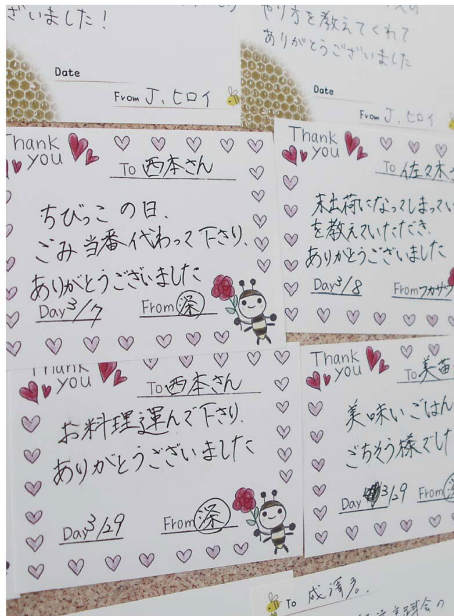 ざいました!
Date
From J.ヒロイ
やり方を教えてくれて
ありがとうございました
Date
From J.ヒロイ
Thank
you
To 西本さん
ちびっこの日、
ごみ当番代わって下さり、
ありがとうございました
Day 3/7
From 深
Thank
you
To 佐々木さ
未出荷になってしまってい
を教えていただき、
ありがとうございました
Day 3/8
From フカサワ
Thank
you
To 西本さん
お料理運んで下さり、
ありがとうございました
Day 3/29
From 深
Thank
you
To 美苗
美味いごはん
ごちそう様でした
Day 3/29
From 深
To 成澤君.